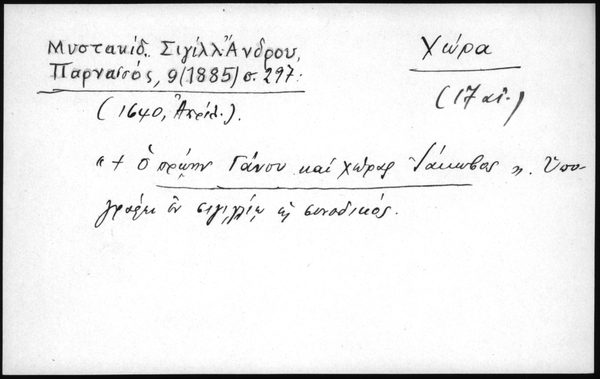 Μυστακίδ. Σιγίλλ. Ἄνδρου,
Παρνασσός, 9 (1885) σ. 297:
Χώρα
(17 αἰ.)
(1640, Ἀπρίλ.).
« + ὁ πρώην Γάνου καὶ χώρας Ἰάκωβος ». Ὑπο-
γράφει ἐν σιγιλλίῳ ὡς συνοδικός.